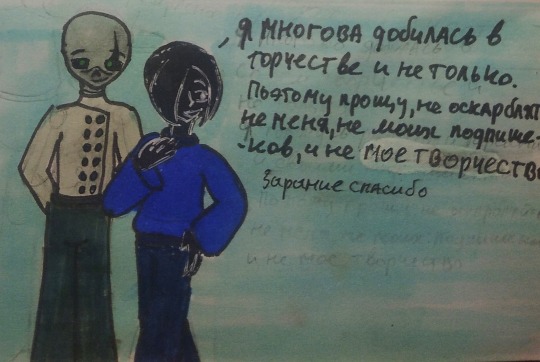 , я многова добилась в
торчестве и не только.
Поэтому прошу, не оскарблят
не меня, не моих подпише-
-ков, и не мое творчеств
Зарание спасибо